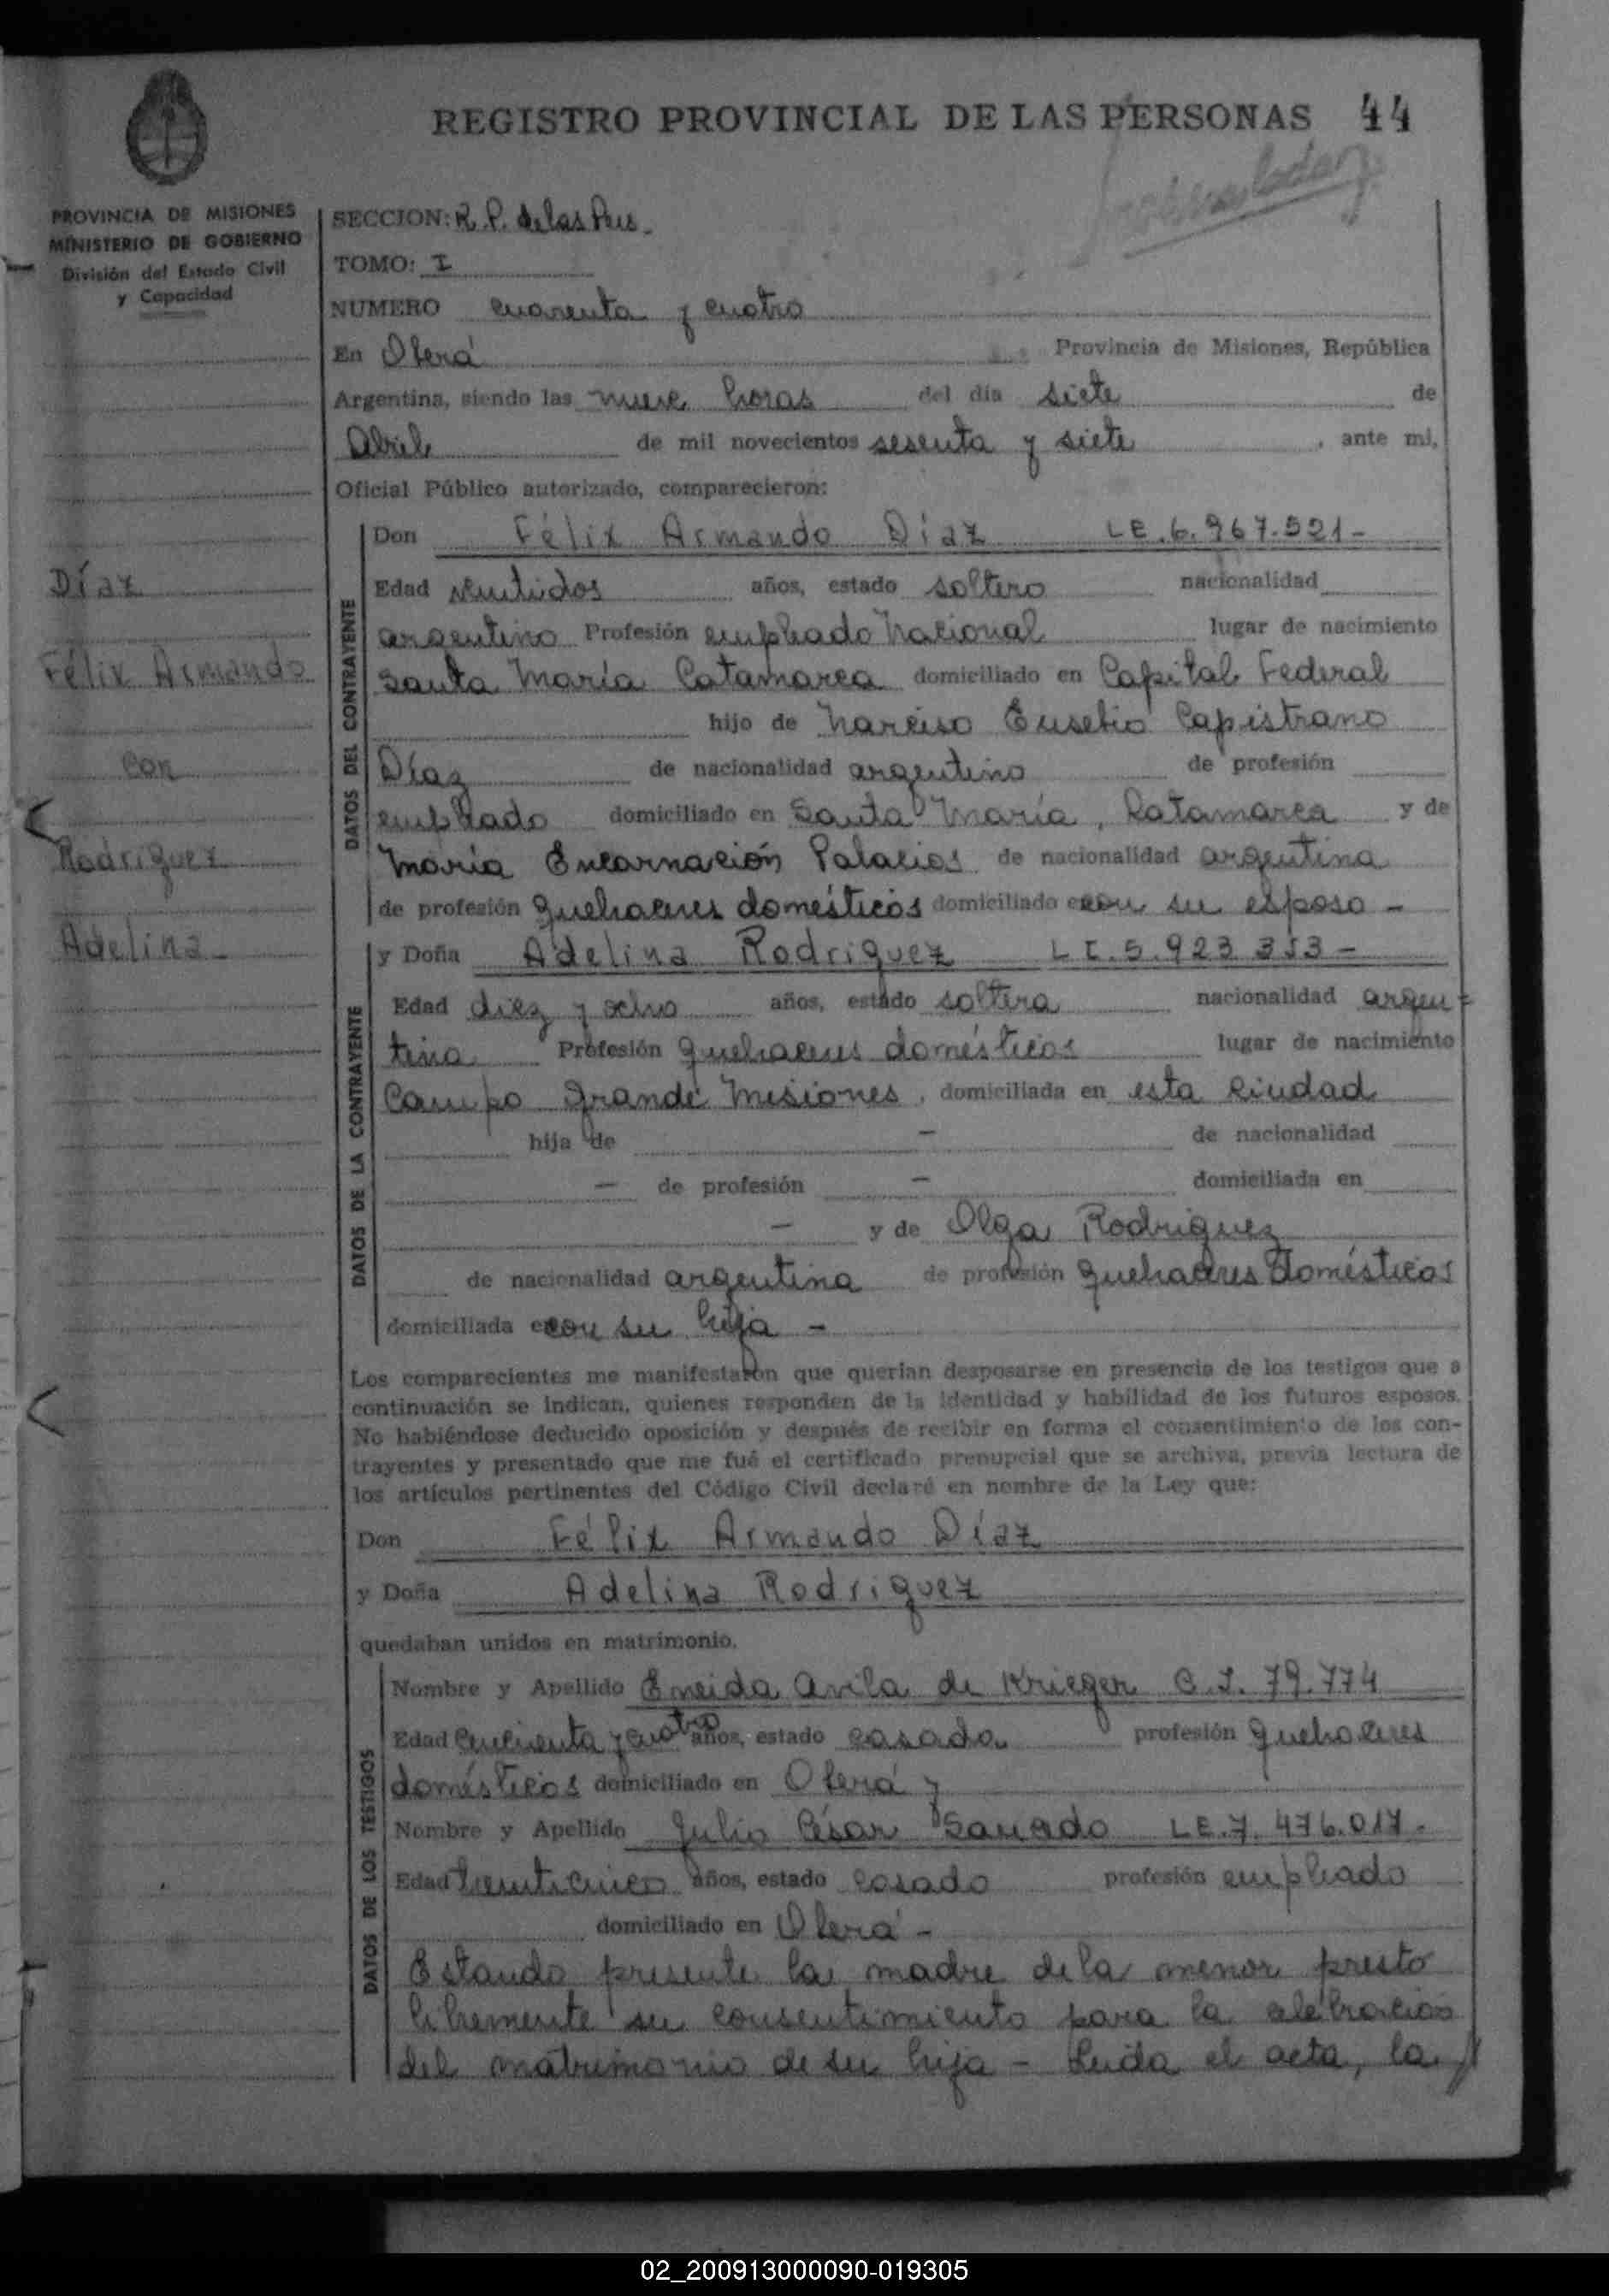 REGISTRO PROVINCIAL DE LAS PERSONAS 44
PROVINCIA DE MISIONES
MINISTERIO DE GOBIERNO
División del Estado Civil
y Capacidad
SECCION: R. P. de las Pers.
TOMO: I
NUMERO cuarenta y cuatro
En Oberá Provincia de Misiones, República
Argentina, siendo las nueve horas del día siete de
Abril de mil novecientos sesenta y siete, ante mi,
Oficial Público autorizado, comparecieron:
Díaz
Félix Armando
con
Rodriguez
Adelina
DATOS DEL CONTRAYENTE
Don Félix Armando Díaz LE.6.967.521-
Edad veintidos años, estado soltero nacionalidad
argentino Profesión empleado Nacional lugar de nacimiento
Santa María Catamarca domiciliado en Capital Federal
hijo de Narciso Eusebio Capistrano
Díaz de nacionalidad argentino de profesión
empleado domiciliado en Santa María, Catamarca y de
María Encarnación Palacios de nacionalidad argentina
de profesión quehaceres domésticos domiciliado con su esposo -
DATOS DE LA CONTRAYENTE
y Doña Adelina Rodriguez L C.5.923 353-
Edad diez y ocho años, estado soltera nacionalidad argen-
tina Profesión quehaceres domésticos lugar de nacimiento
Campo Grande Misiones, domiciliada en esta ciudad
hija de - de nacionalidad
- de profesión - domiciliada en
- y de Olga Rodriguez
de nacionalidad argentina de profesión quehaceres domésticos
domiciliada con su hija -
Los comparecientes me manifestaron que querían desposarse en presencia de los testigos que a
continuación se indican, quienes responden de la identidad y habilidad de los futuros esposos.
No habiéndose deducido oposición y después de recibir en forma el consentimiento de los con-
trayentes y presentado que me fué el certificado prenupcial que se archiva, previa lectura de
los artículos pertinentes del Código Civil declaré en nombre de la Ley que:
Don Félix Armando Díaz
y Doña Adelina Rodriguez
quedaban unidos en matrimonio.
DATOS DE LOS TESTIGOS
Nombre y Apellido Eneida Avila de Krieger C.I. 79.774
Edad cincuenta y cuatro años, estado casada profesión quehaceres
domésticos domiciliado en Oberá y
Nombre y Apellido Julio César LE.7.476.017.
Edad años, estado casado profesión empleado
domiciliado en Oberá -
Estando presente la madre de la menor presto
libremente su consentimiento para la celebración
del matrimonio de su hija - Leida el acta, la
02_200913000090-019305